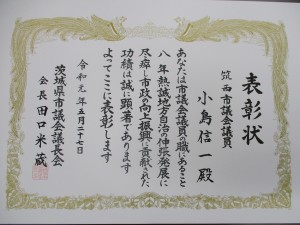 表彰状
筑西市議会議員
小島信一殿
あなたは市議会議員の職にあること
八年熱誠地方自治の伸張発展に
尽瘁し市政の向上振興に貢献された
功績は誠に顕著であります
よってここに表彰します
令和元年五月二十七日
茨城県市議会議長会
会長田口米蔵